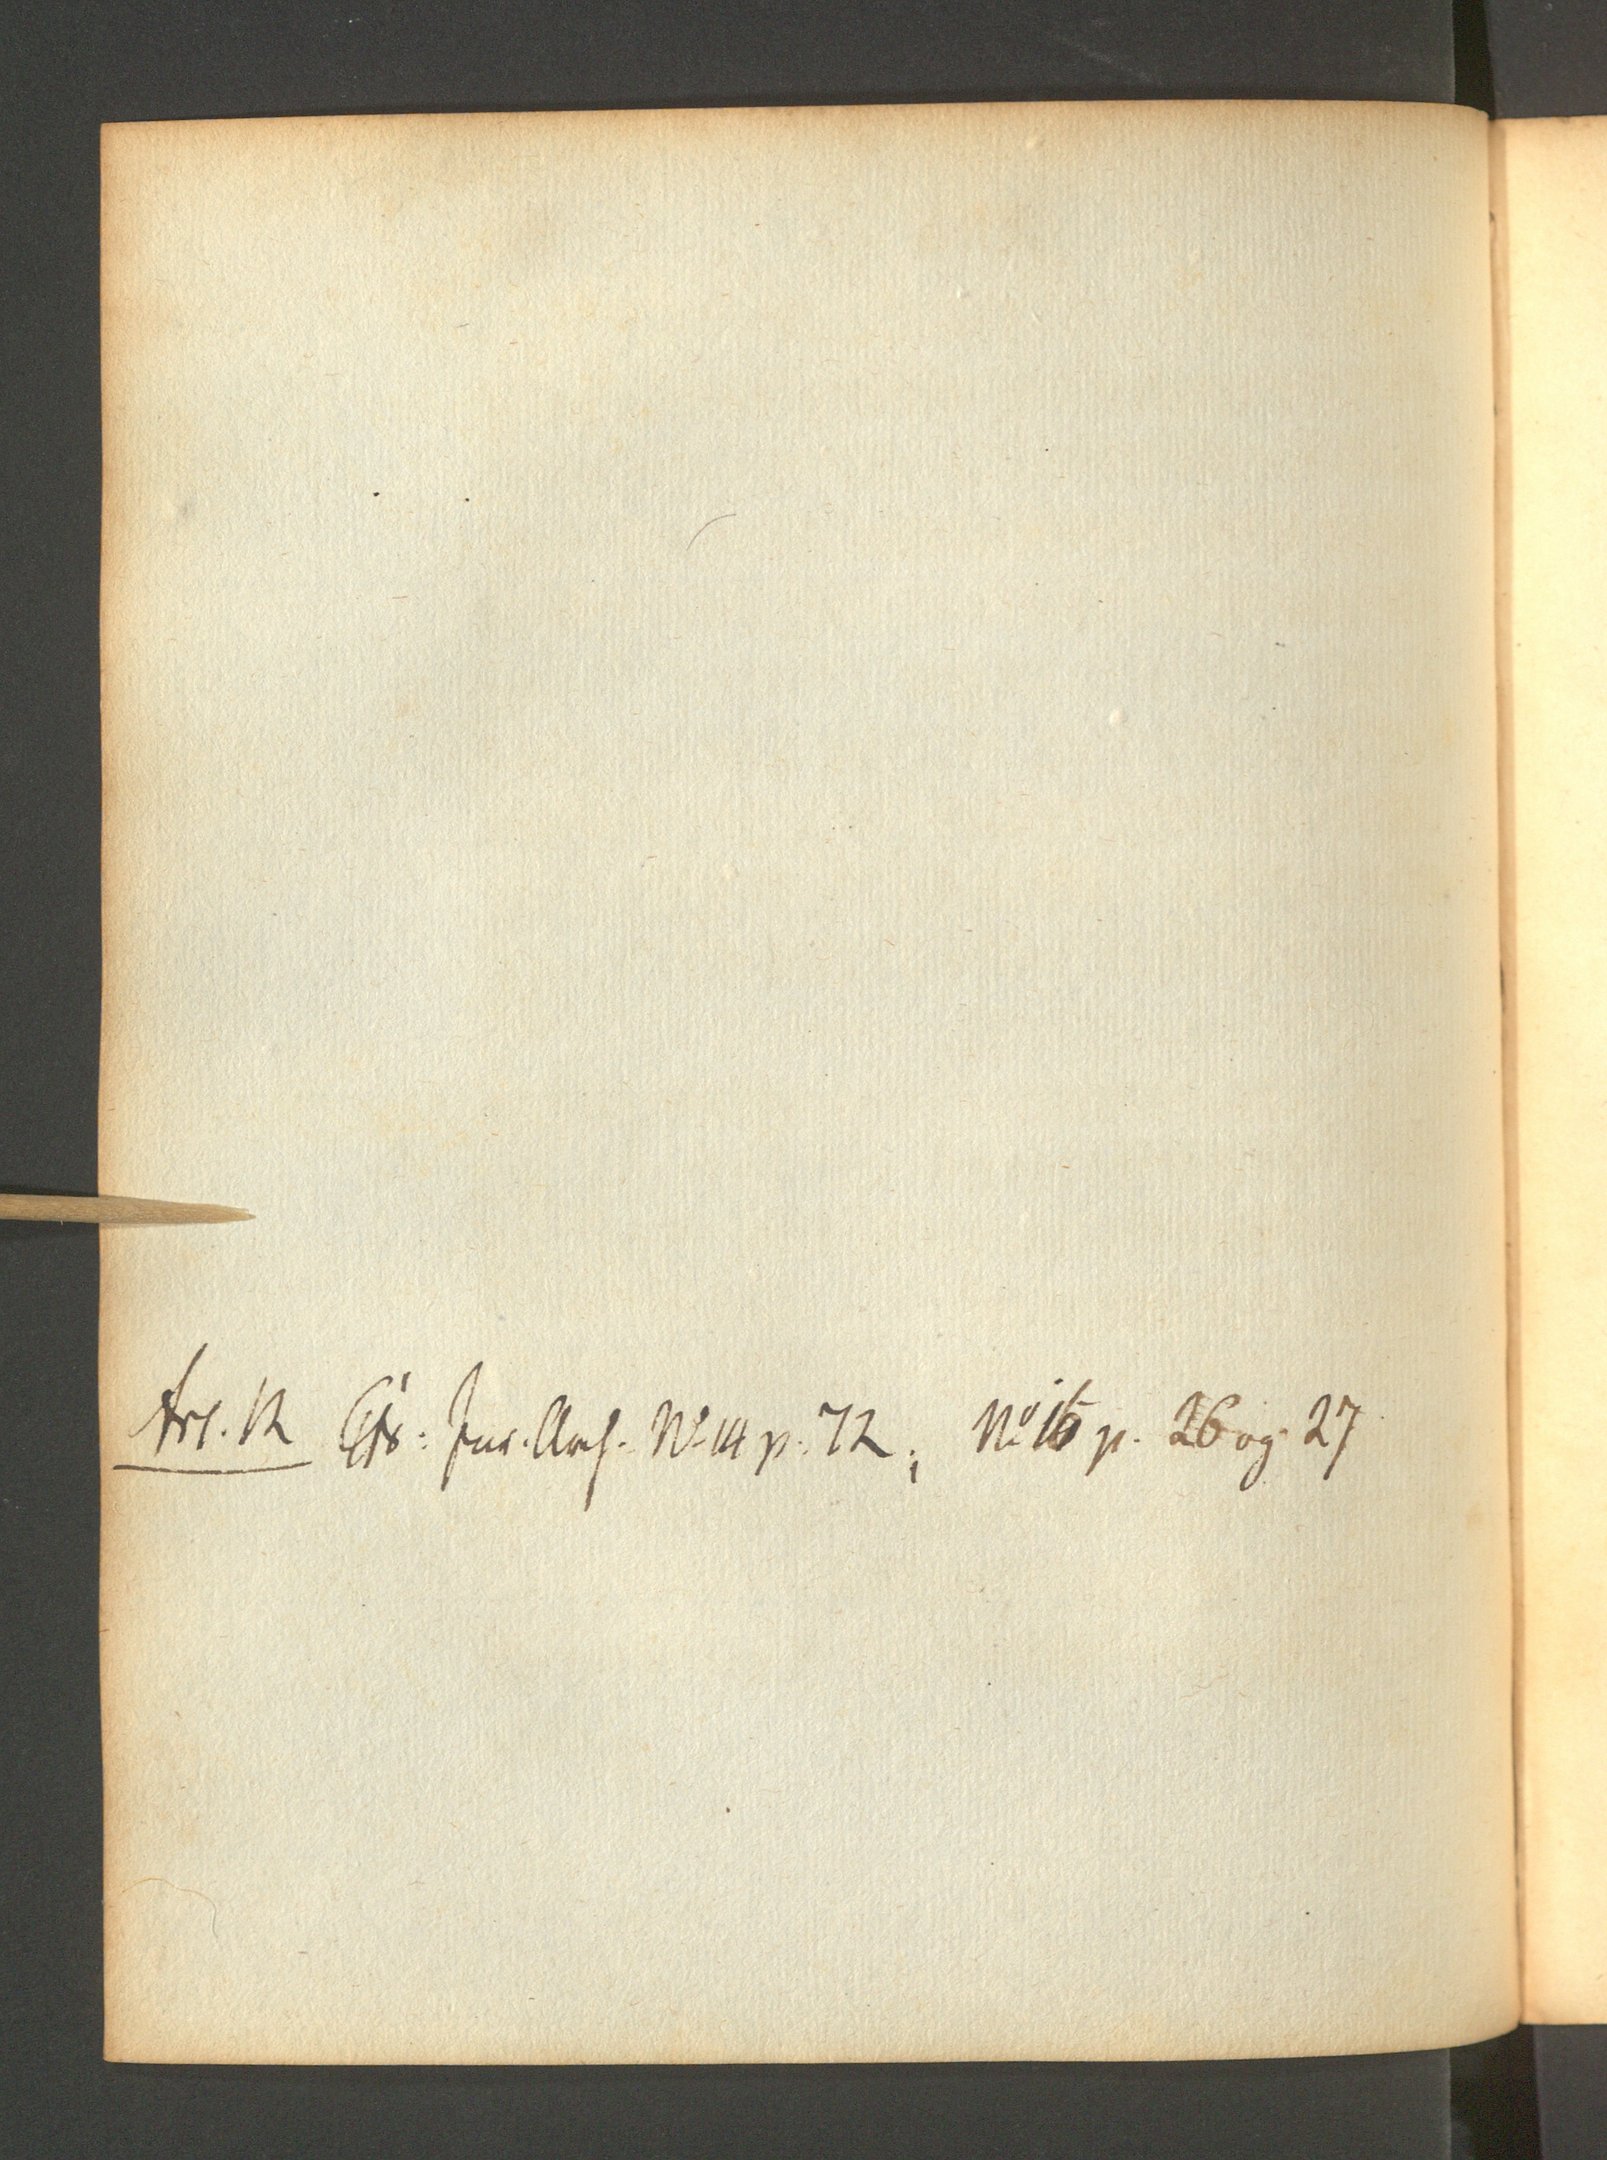 Art. 12 Cfr: Jur. Arch. No 14 p. 72; No 15 p. 26 og 27